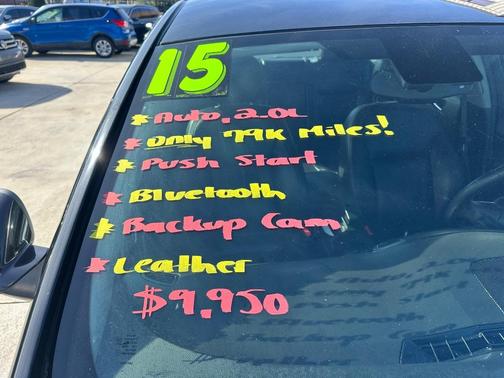 15
* Auto, 2.0L
* Only 79K Miles!
* Push Start
* Bluetooth
* Backup Cam
* Leather
$9,950